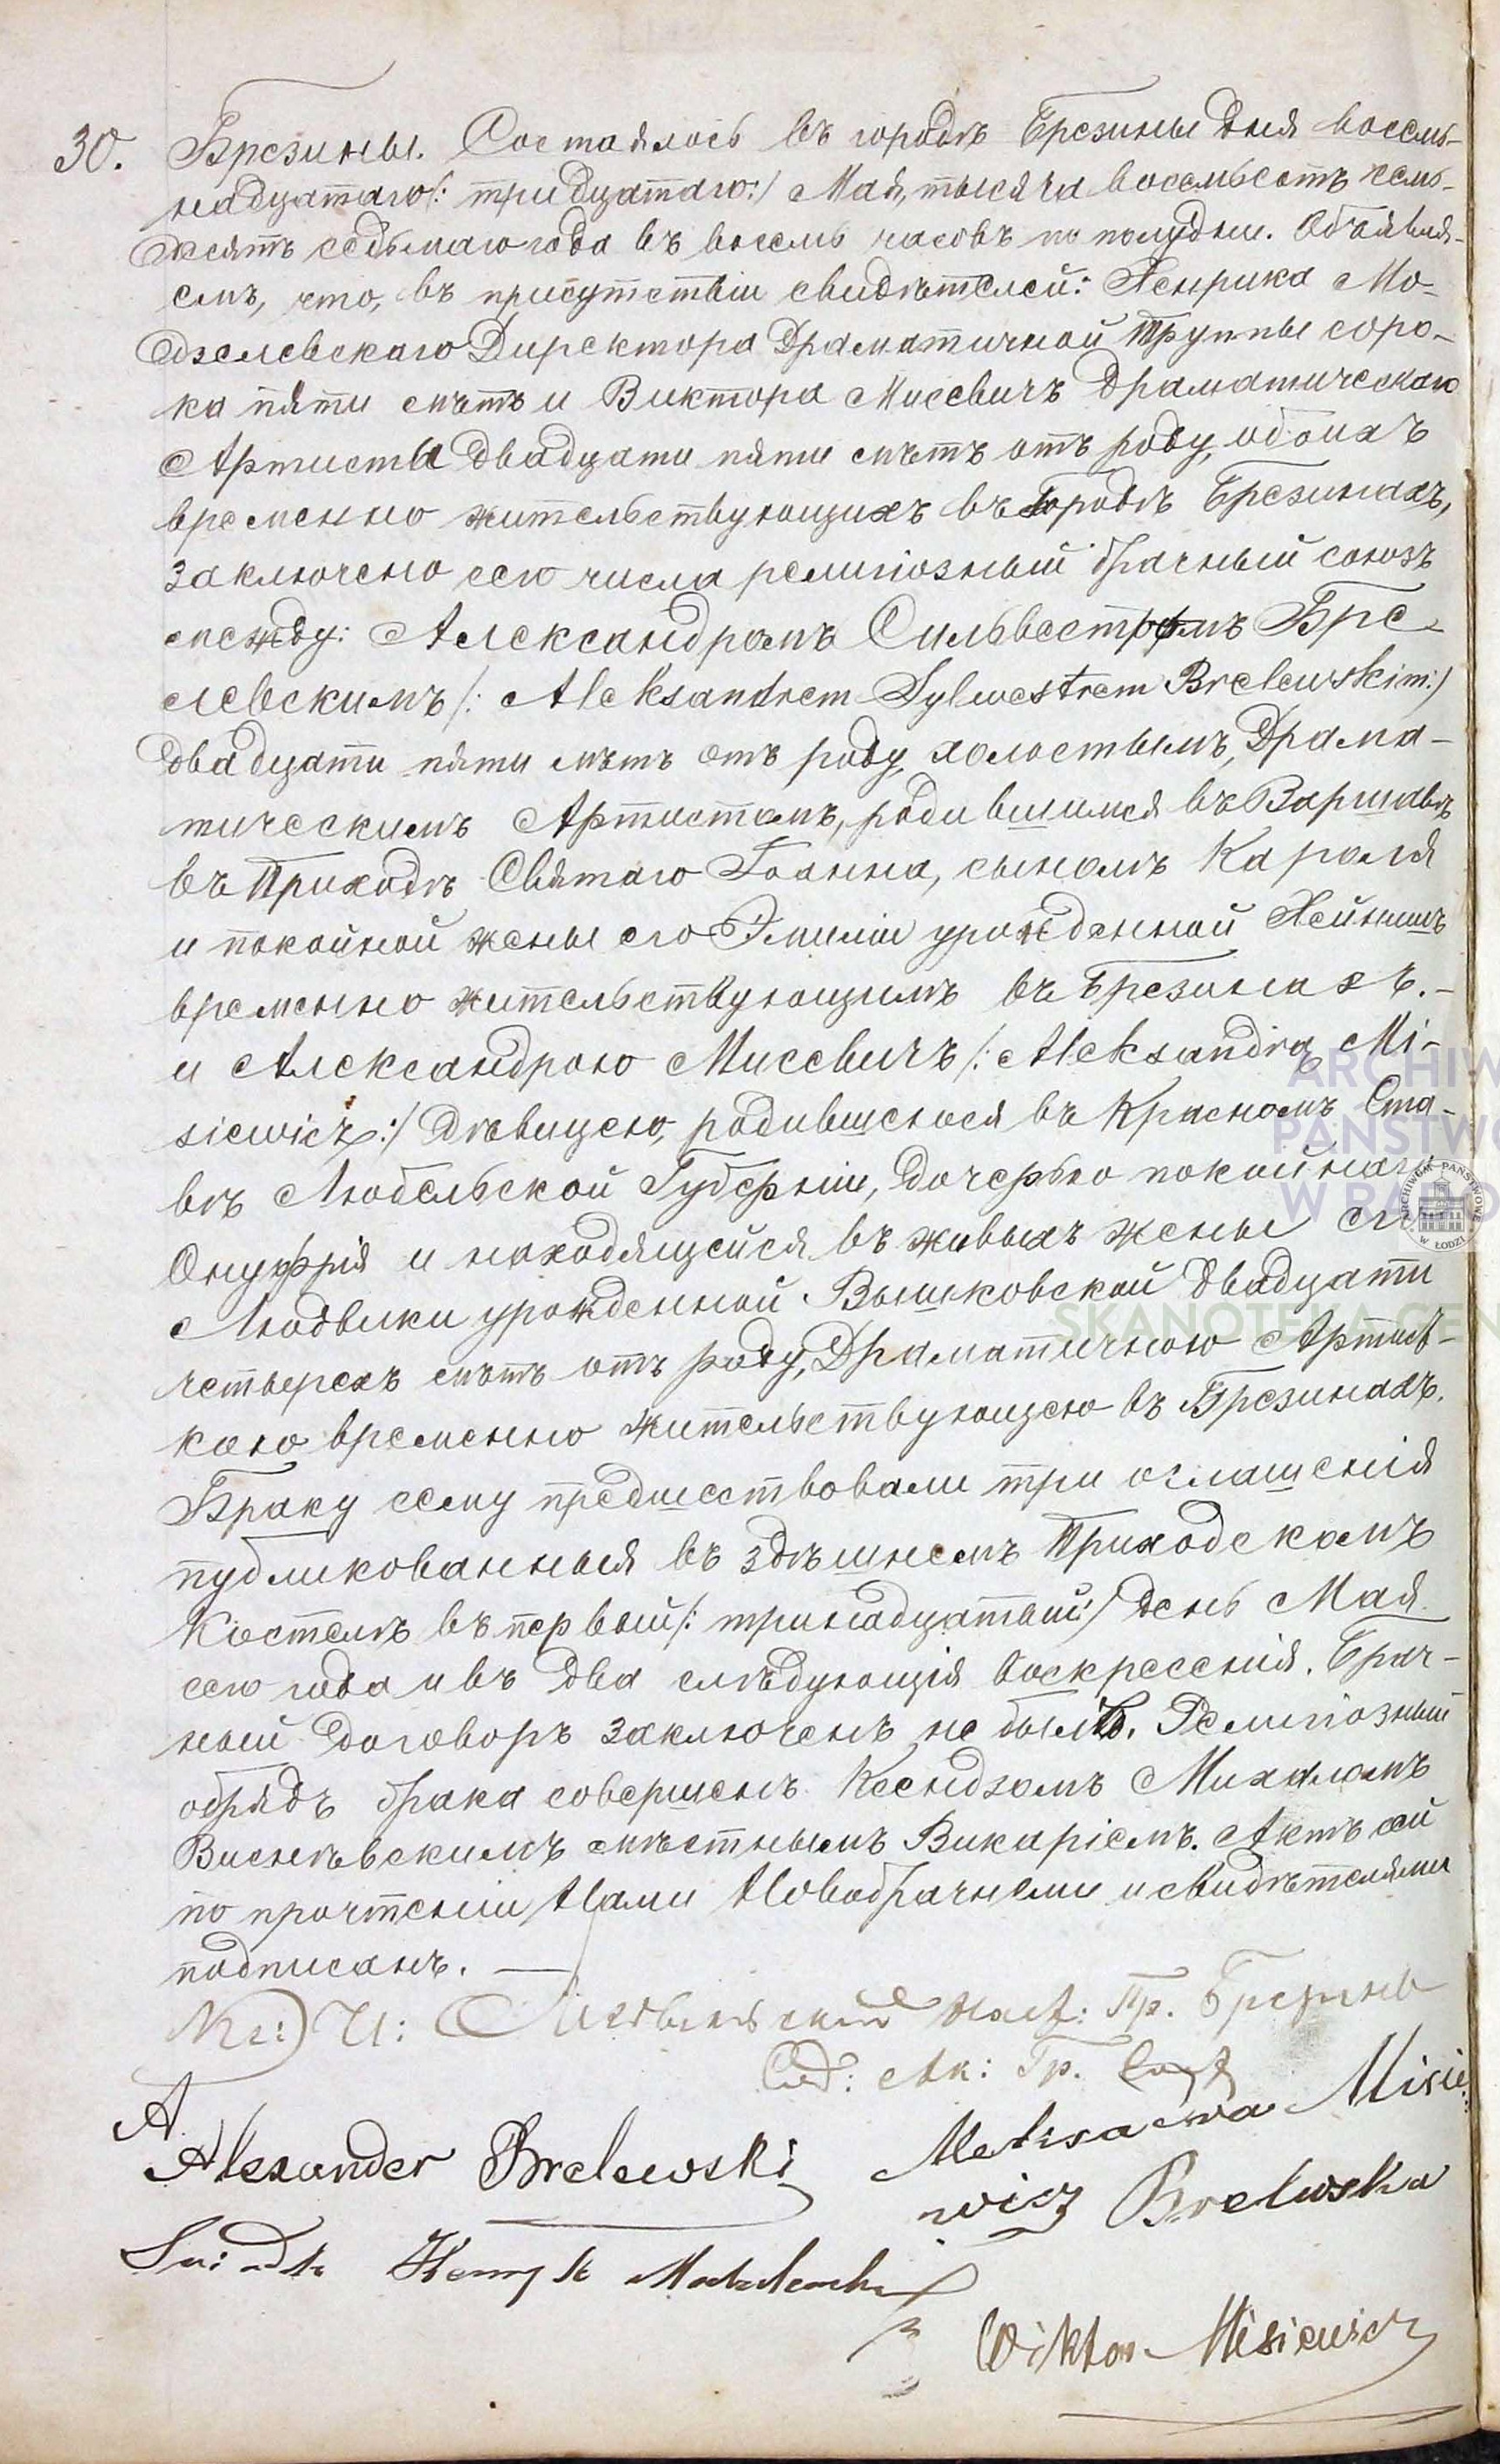 30. Брезины. Состоялось въ городѣ Брезины дня восемь-
надцатаго /: тридцатаго :/ Мая, тысяча восемьсотъ семь-
десятъ седьмаго года въ восемь часовъ по полудни. Объявля-
емъ, что, въ присутствіи свидѣтелей: Хенрика Мо-
дзелевскаго Директора Драматичной Труппы соро-
ка пяти лѣтъ и Виктора Мисевичъ Драматическаго
Артиста двадцати пяти лѣтъ отъ роду, обоихъ
временно жительствующихъ въ Городѣ Брезинахъ,
заключено сего числа религіозный брачный союзъ
между: Александромъ Сильвестромъ Бре-
левскимъ /: Aleksandrem Sylwestrem Brelewskim :/
двадцати пяти лѣтъ отъ роду, холостымъ, Драма-
тическимъ Артистомъ, родившимся въ Варшавѣ
въ Приходѣ Святаго Іоанна, сыномъ Кароля
и покойной жены его Эмиліи урожденной Хейнишъ
временно жительствующимъ въ Брезинахъ. –
и Александрою Мисевичъ /: Aleksandrą Mi-
siewicz :/ Дѣвицею, родившеюся въ Красномъ Ста-
вѣ Любельской Губерніи, дочерью покойнаго
Онуфрія и находящейся въ живыхъ жены его
Людвики урожденной Вышковской двадцати
четырехъ лѣтъ отъ роду, Драматичною Артист-
кою временно жительствующею въ Брезинахъ.
Браку сему предшествовали три оглашенія
публикованныя въ здѣшнемъ Приходскомъ
Костелѣ въ первый /: тринадцатый :/ день Мая
сего года и въ два слѣдующія воскресенія. Брач-
ный договоръ заключенъ не былъ. Религіозный
обрядъ брака совершенъ Ксендзомъ Михаломъ
Висьнѣвскимъ мѣстнымъ Викаріемъ. Актъ сей
по прочтеніи Нами Новобрачными и свидѣтелями
подписанъ. —
Пр. Брезины
Сод: Ак: Гр.
A.
Alexander Brelewski
Aleksandra Misie-
wicz Brelewska
Henryk Modzelewski
Wiktor Misiewicz
ARCHIW
PAŃSTWO
W RADO
ARCHIWUM PAŃSTWOWE
W ŁODZI
SKANOTEKA GEN